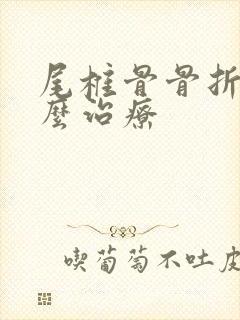 尾柱骨骨折
麽治療
喫葡萄不吐皮